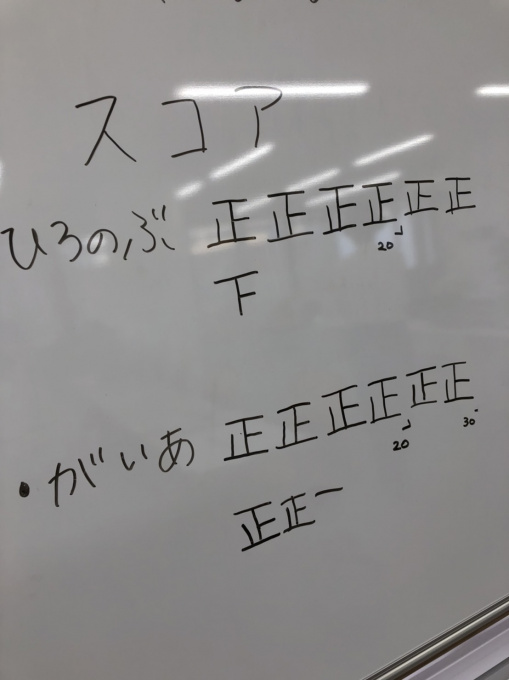 スコア
ひろのぶ 正正正正正正
20
下
・がいあ 正正正正正正
20 30
正正一